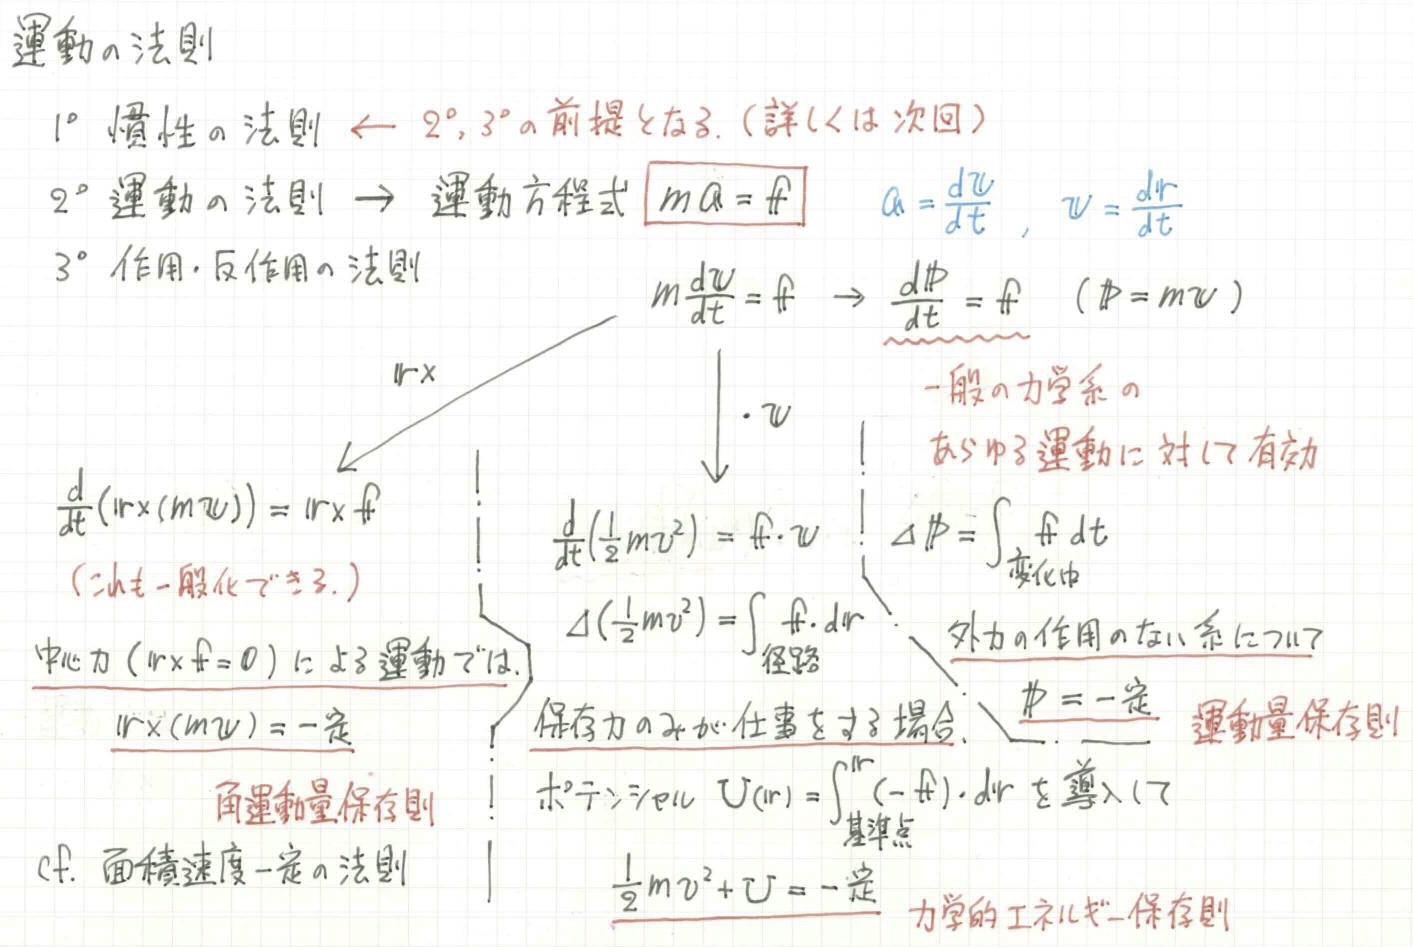 運動の法則
1° 慣性の法則 ← 2°, 3°の前提となる.(詳しくは次回)
2° 運動の法則 → 運動方程式 ma = f a = dv/dt , v = dr/dt
3° 作用・反作用の法則
m dv/dt = f → dp/dt = f (p = mv)
一般の力学系の
あらゆる運動に対して有効
r×
・v
d/dt(r×(mv)) = r×f
(これも一般化できる.)
中心力(r×f=0)による運動では、
r×(mv) = 一定
角運動量保存則
cf. 面積速度一定の法則
d/dt(1/2 mv²) = f・v
Δ(1/2 mv²) = ∫経路 f・dr
保存力のみが仕事をする場合、
ポテンシャル U(r) = ∫基準点^r (-f)・dr を導入して
1/2 mv² + U = 一定
力学的エネルギー保存則
Δp = ∫変化中 f dt
外力の作用のない系について
p = 一定
運動量保存則